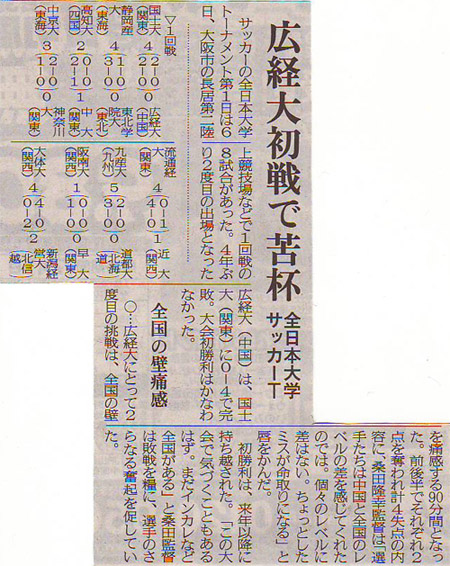 広経大初戦で苦杯
全日本大学
サッカーT
サッカーの全日本大学
トーナメント第1日は6
日、大阪市の長居第二陸
上競技場などで1回戦の
8試合があった。4年ぶ
り2度目の出場となった
広経大(中国)は、国士
大(関東)に0―4で完
敗。大会初勝利はかなわ
なかった。
全国の壁痛感
○…広経大にとって2
度目の挑戦は、全国の壁
を痛感する90分間となっ
た。前後半でそれぞれ2
点を奪われ計4失点の内
容に、桑田隆幸監督は「選
手たちは中国と全国のレ
ベルの差を感じてくれた
のでは。個々のレベルに
差はない。ちょっとした
ミスが命取りになる」と
唇をかんだ。
初勝利は、来年以降に
持ち越された。「この大
会で気づくこともある
はず。まだインカレなど
全国がある」と桑田監督
は敗戦を糧に、選手のさ
らなる奮起を促してい
た。
▽1回戦
国士大(関東) 4 2―0 2―0 0 広経大(中国)
静岡産大(東海) 4 3―0 1―0 0 東北学院大(東北)
高知大(四国) 2 0―0 2―1 1 中大(関東)
中京大(東海) 3 2―0 1―0 0 神奈川大(関東)
流通経大(関東) 4 0―1 4―0 1 近大(関西)
九産大(九州) 5 2―0 3―0 0 道都大(北海道)
阪南大(関西) 1 0―0 1―0 0 早大(関東)
大体大(関西) 4 4―0 0―2 2 新潟経営大(北信越)